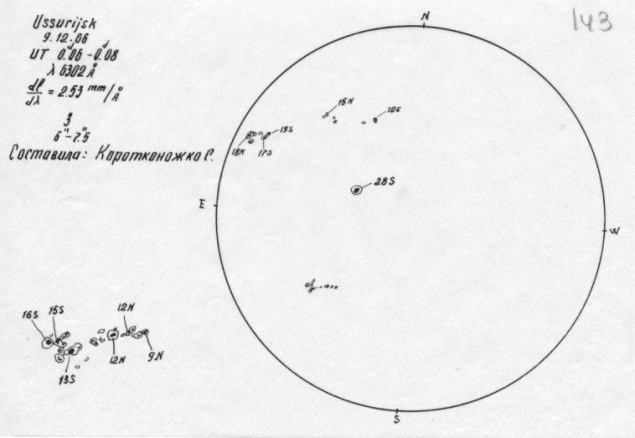 143
Ussurijsk
9.12.06
UT 0.06 - 0.08
λ 6302 Å
dl/dλ = 2.53 mm/Å
3
6" - 7.5
Составила: Коротконожко С.
N
16N
19S
18N
17S
28S
E
W
S
16S
15S
12N
13S
12N
9N